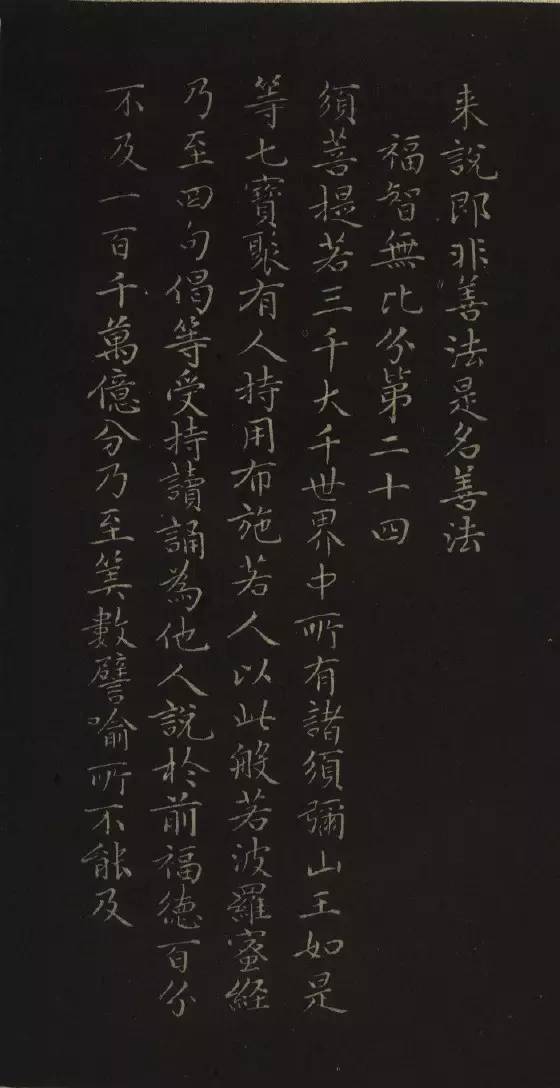 来說即非善法是名善法
福智無比分第二十四
須菩提若三千大千世界中所有諸須彌山王如是
等七寶聚有人持用布施若人以此般若波羅蜜経
乃至四句偈等受持讀誦為他人說於前福德百分
不及一百千萬億分乃至筭數譬喻所不能及